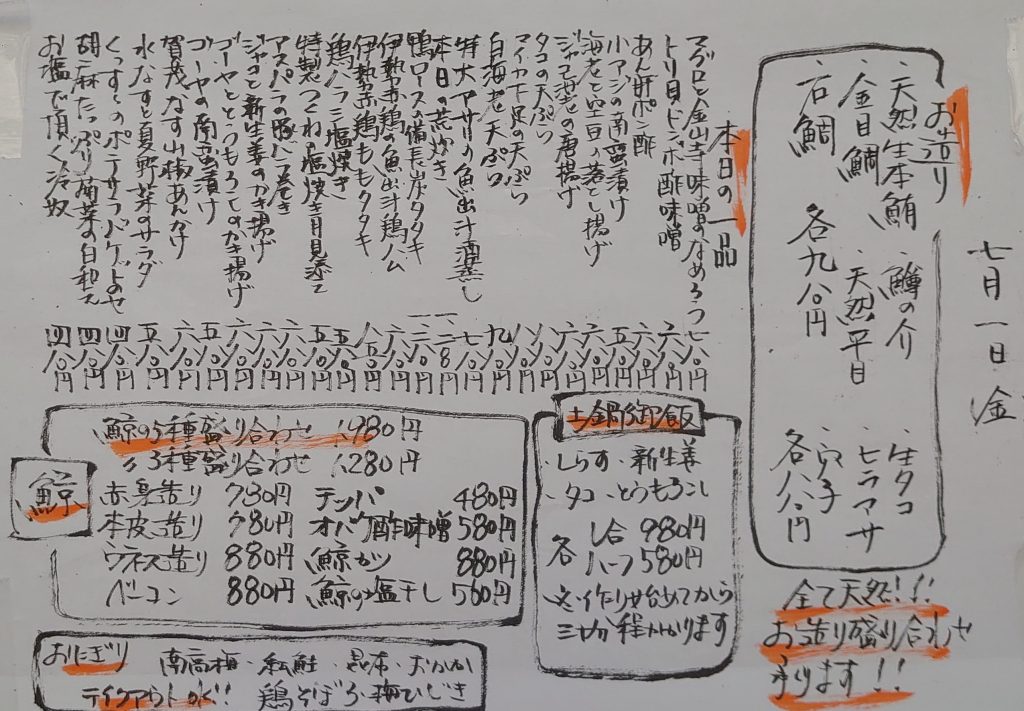 七月一日 金
お造り
・天然生本鮪 ・鱒の介 ・生タコ
・金目鯛 ・天然平目 ・ヒラマサ
・石鯛 ・穴子
各九八〇円 各八八〇円
全て天然!!
お造り盛り合わせ
承ります!!
本日の一品
マグロと金山寺味噌のなめろう 七八〇円
トリ貝とドンボ酢味噌 六八〇円
あん肝ポン酢
小アジの南蛮漬け
海老と空豆の落とし揚げ
ジャコ海老の唐揚げ
タコの天ぷら
マイカ下足の天ぷら
白海老天ぷら
特大アサリの魚出汁酒蒸し
本日の荒炊き
鴨ロースの備長炭タタキ
伊勢赤鶏の魚出汁鶏ハム
伊勢赤鶏ももタタキ
鶏ハラミ塩焼き
特製つくね塩焼き月見添え
アスパラの豚バラ巻き
ジャコと新生姜のかき揚げ
ゴーヤととうもろこしのかき揚げ
ゴーヤの南蛮漬け
賀茂なす山椒あんかけ
水なすと夏野菜のサラダ
くんすこのポテサラバゲットのせ 四八〇円
胡麻たっぷり青菜の白和え 四八〇円
お塩で頂く冷奴 四八〇円
鯨
鯨の5種盛り合わせ 1,980円
〃3種盛り合わせ 1,280円
赤身造り 780円 テッパ 480円
本皮造り 780円 オバケ酢味噌 580円
ウネス造り 880円 鯨カツ 880円
ベーコン 880円 鯨の塩干し 560円
土鍋御飯
・しらす・新生姜
・タコ・とうもろこし
各 1合 980円
ハーフ 580円
※作り始めてから
三十分程かかります
おにぎり 南高梅・私鮭・昆布・おかか
テイクアウトok!! 鶏そぼろ・梅ひじき